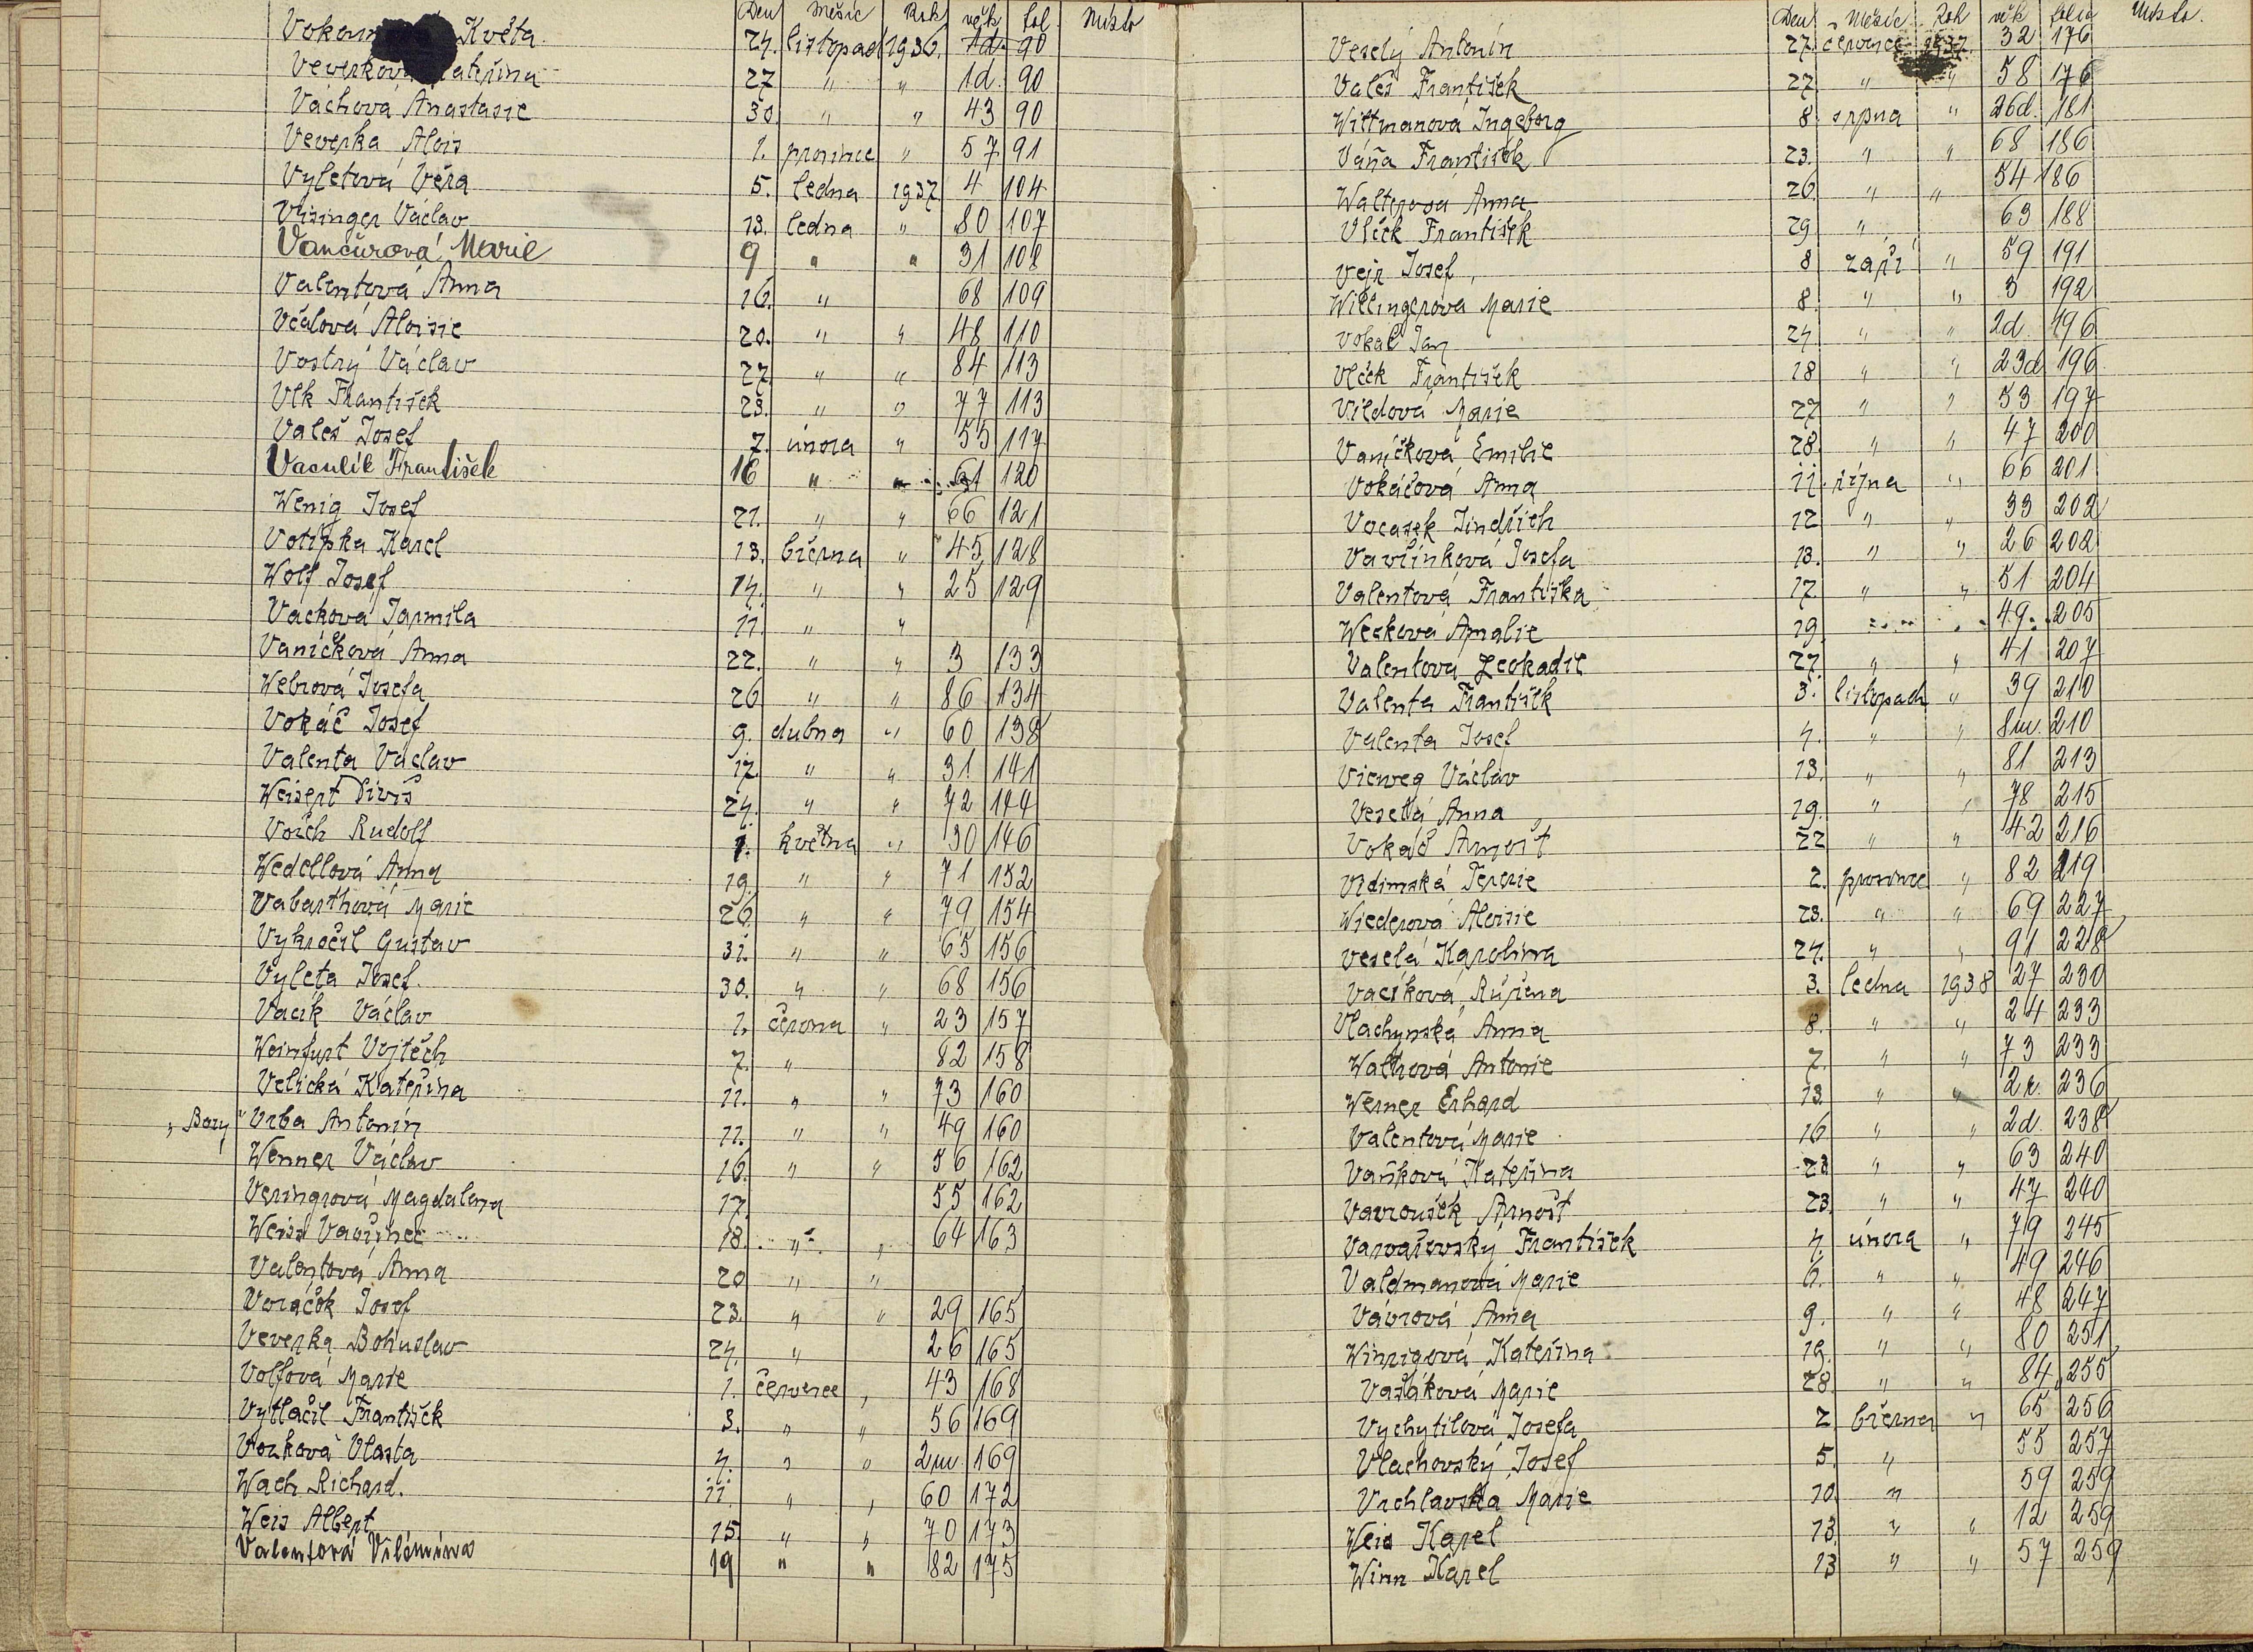 Den Měsíc Rok věk fol. Místo
Květa 24. listopad 1936. 1d. 90
Veverková Kateřina 27 " " 1d. 90
Váchová Anastasie 30 " " 43 90
Veverka Alois 1. prosince " 57 91
Vyletová Věra 5. ledna 1937 4 104
Visinger Václav 13. ledna " 80 107
Vančurová Marie 9 " " 31 108
Valentová Anna 16. " 68 109
Včalová Aloisie 20. " " 48 110
Vostrý Václav 27. " " 84 113
Vlk František 28. " " 77 113
Valeš Josef 7. února " 55 117
Vaculík František 16 " " 61 120
Wenig Josef 21. " " 66 121
Votípka Karel 13. března " 45 128
Wolf Josef 14. " " 25 129
Vacková Jarmila 11. " "
Vaníčková Anna 22. " " 3 133
Webrová Josefa 26 " " 86 134
Vokáč Josef 9. dubna " 60 138
Valenta Václav 17. " " 31 141
Weisert Diviš 24. " " 72 144
Vorch Rudolf 1. května " 30 146
Wedellová Anna 19. " " 71 152
Vabarthová Marie 26. " " 79 154
Vykročil Gustav 31. " " 65 156
Vyleta Josef. 30. " " 68 156
Vacík Václav 1. června " 23 157
Weinfurt Vojtěch 7. " 82 158
Velická Kateřina 11. " " 73 160
"Bory" Vrba Antonín 11. " " 49 160
Wenner Václav 16. " " 56 162
Veringrová Magdalena 17. 55 162
Weiss Vavřinec 18. " " 64 163
Valentová Anna 20 " "
Voráček Josef 23. " " 29 165
Veverka Bohuslav 24. " 26 165
Volfová Marie 1. července " 43 168
Vytlačil František 3. " " 56 169
Vozková Vlasta 4. " " 2m. 169
Wach Richard. 11. " " 60 172
Weis Albert 15. " " 70 173
Valentová Vilémina 19 " " 82 175
Den Měsíc Rok věk folio Místo.
Veselý Antonín 27. července 1937. 32 176
Valeš František 27. " " 58 176
Wittmanová Ingeborg 8. srpna " 26d. 181
Váňa František 23. " " 68 186
Walterová Anna 26. " " 54 186
Vlček František 29 " 63 188
Vejr Josef 8 září " 59 191
Willingerova Marie 8. " " 3 192
Vokáč Jan 24 " " 2d. 196
Vlček František 18 " " 23d 196
Vildová Marie 27 " " 53 197
Vaníčková Emilie 28. " " 47 200
Vokáčová Anna 11. října " 66 201
Vocasek Jindřich 12 " " 33 202
Vavřínková Josefa 13. " " 26 202
Valentová Františka 17 " " 51 204
Wecková Amalie 19 49 205
Valentová Leokadie 27. " " 41 207
Valenta František 3. listopadu " 39 210
Valenta Josef 4. " " 8m. 210
Vieweg Václav 13. " " 81 213
Veselá Anna 19. " " 78 215
Vokáč Arnošt 22 " " 42 216
Vidimská Terezie 2. prosince " 82 219
Wiederová Aloisie 23. " " 69 227
Veselá Karolina 24. " " 91 228
Vacíková Růžena 3. ledna 1938 27 230
Vlachynská Anna 8. " " 24 233
Waltrová Antonie 7. " " 73 233
Werner Erhard 13. " " 2r. 236
Valentová Marie 16 " " 2d. 238
Vaňková Kateřina 23. " " 63 240
Vavroušek Arnošt 23. " " 47 240
Varvařovský František 4. února " 79 245
Valdmanová Marie 6. " " 49 246
Vávrová Anna 9. " " 48 247
Winrigová Kateřina 19. " " 80 251
Vašáková Marie 28. " " 84 255
Vychytilová Josefa 2 března " 65 256
Vlachovský Josef 5. " 55 257
Vrchlavská Marie 10. " 59 259
Weis Karel 13. " " 12 259
Winn Karel 13 " " 57 259